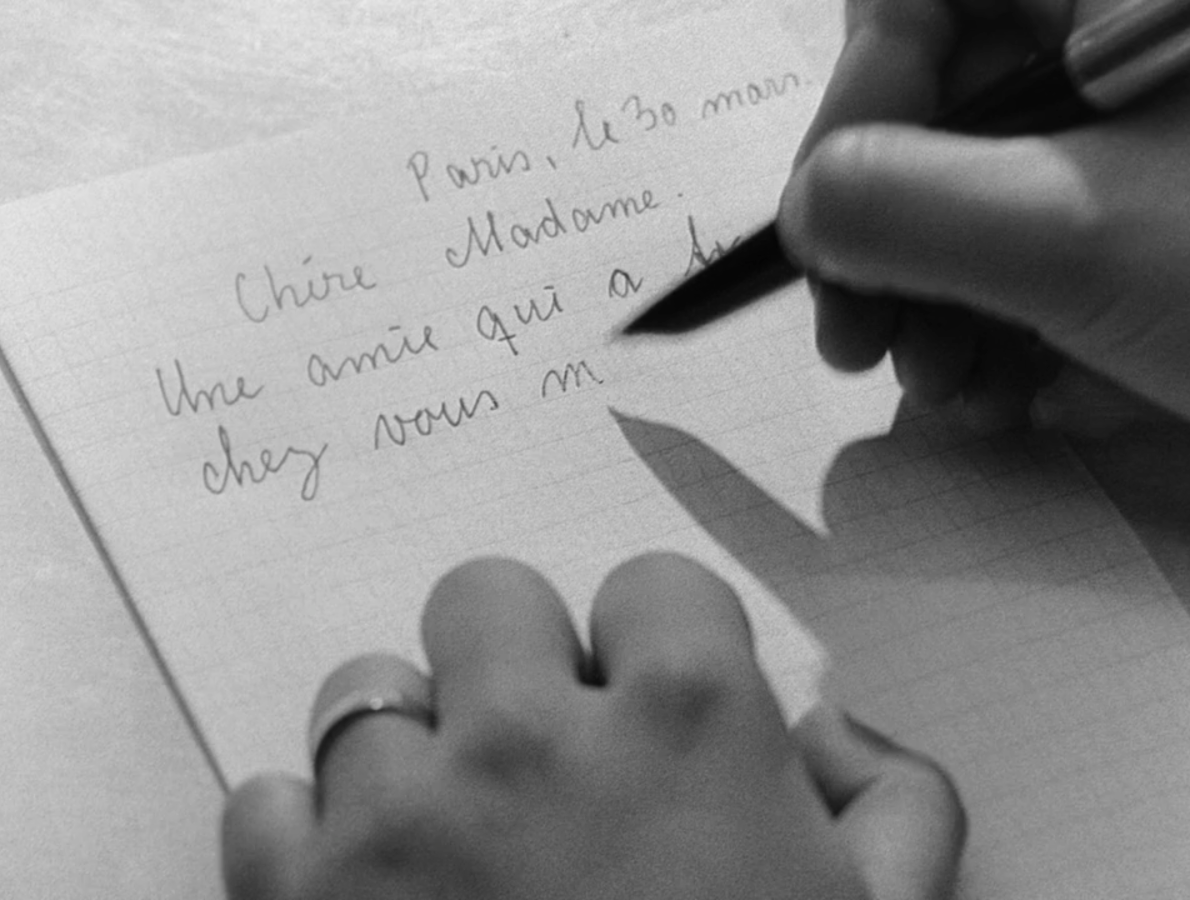 Paris, le 30 mars.
Chère Madame.
Une amie qui a
chez vous m